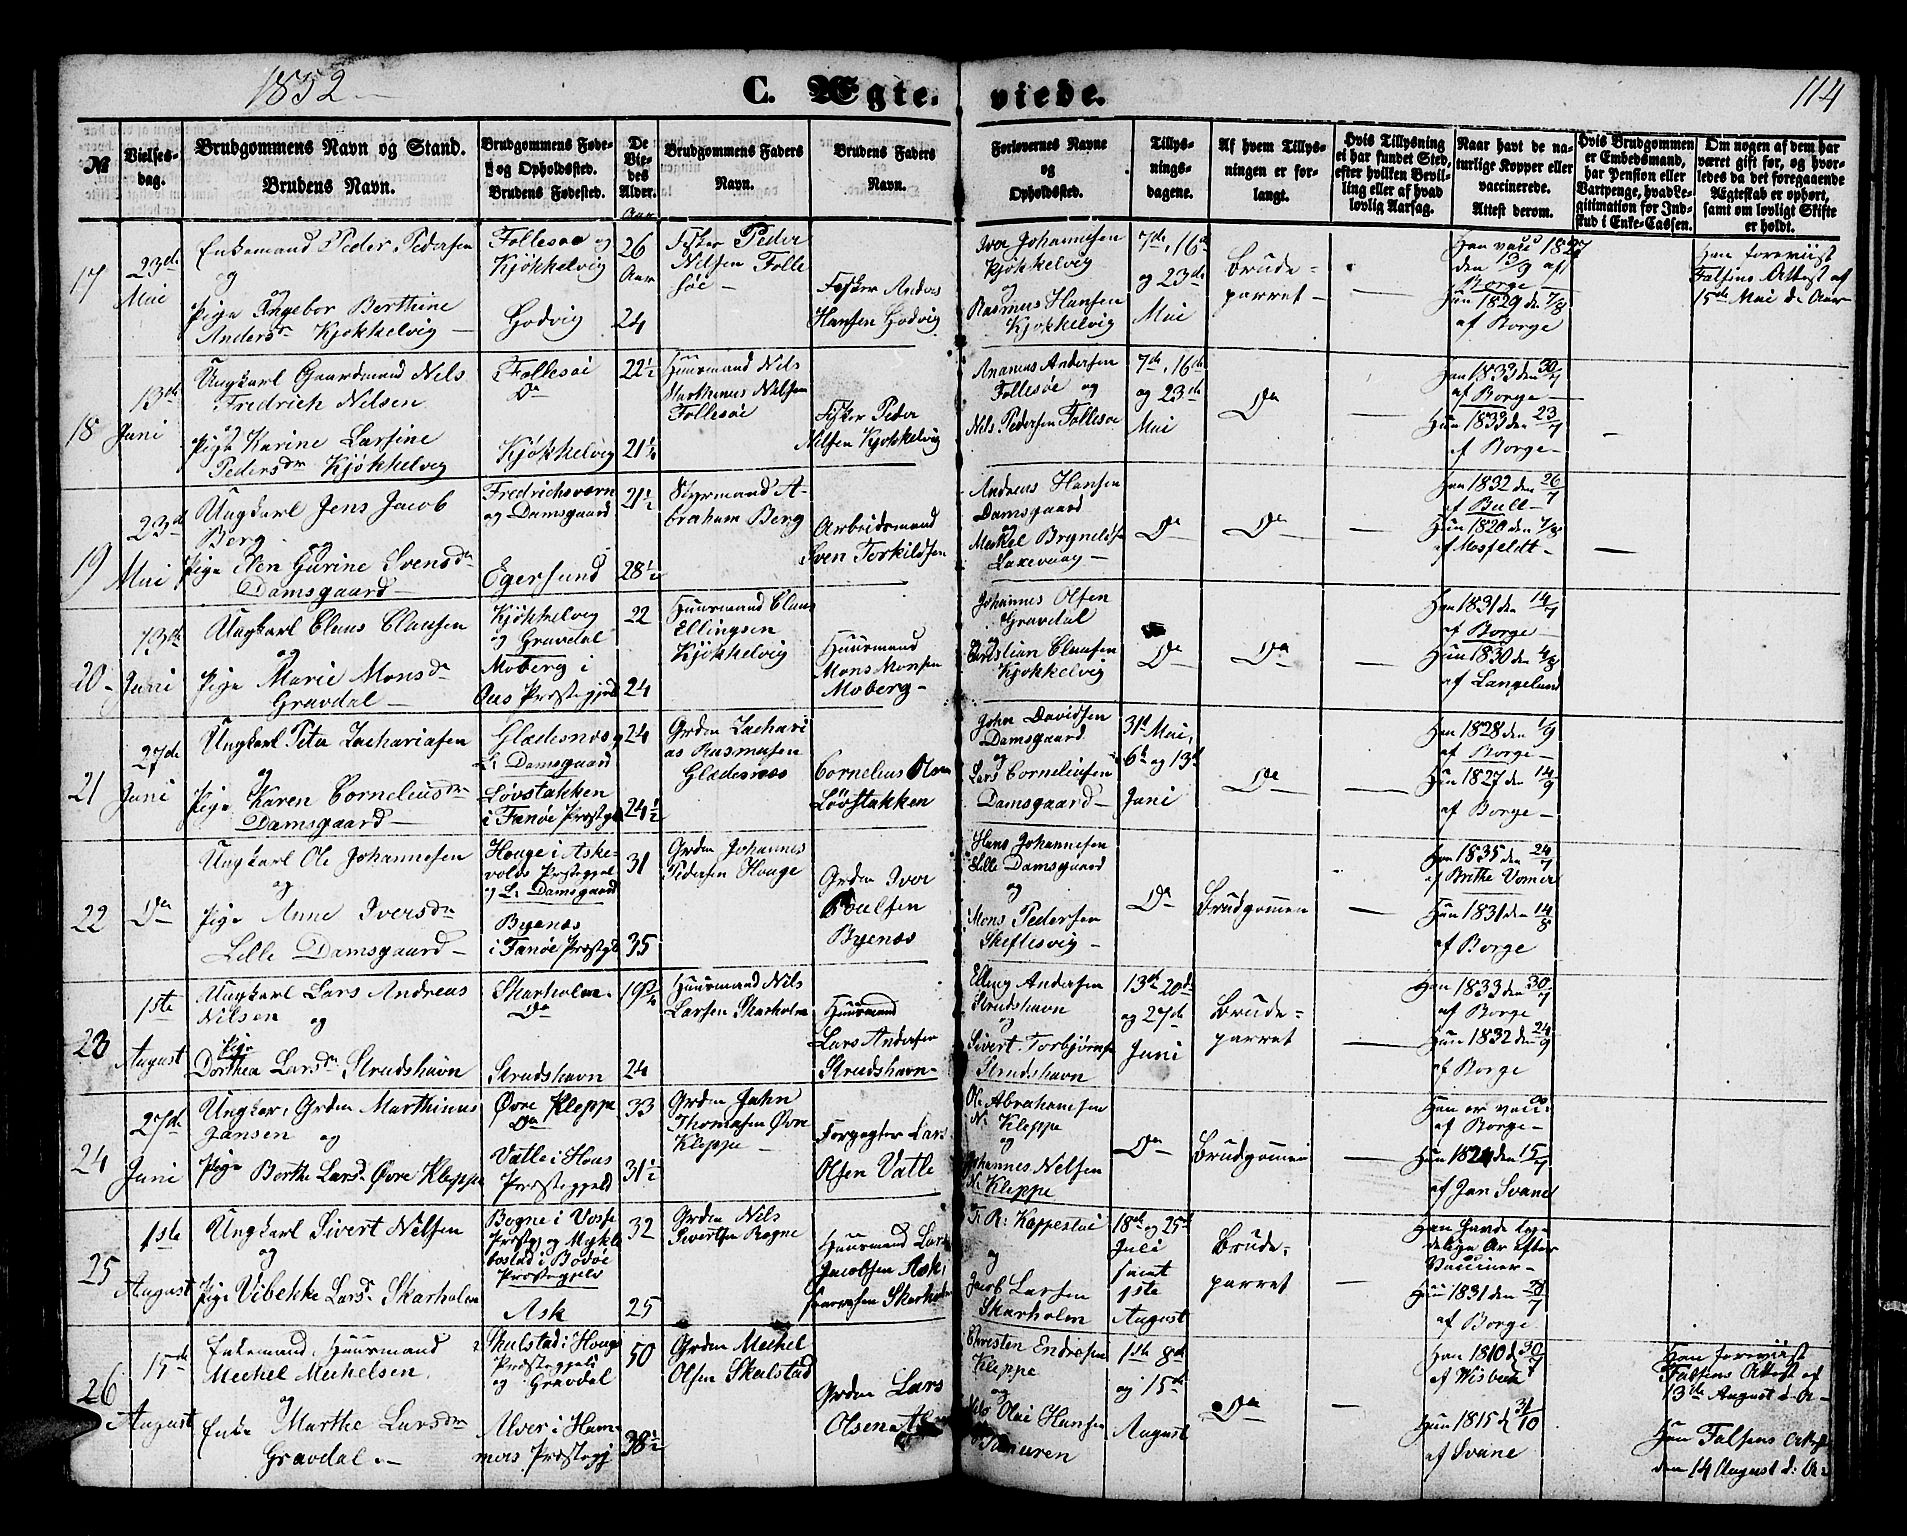 1852
C. Ægte-
viede.
114
№
Vielses-
dag.
Brudgommens Navn og Stand.
Brudens Navn.
Brudgommens Føde-
og Opholdssted.
Brudens Fødested.
De
Vie-
des
Alder.
Aar
Brudgommens Faders
Navn.
Brudens Faders
Navn.
Forlovernes Navne
og
Opholdssted.
Tillys-
nings-
dagene.
Af hvem Tillys-
ningen er for-
langt.
Hvis Tillysning
ei har fundet Sted,
efter hvilken Bevil-
ling eller af hvad
lovlig Aarsag.
Naar havt de na-
turlige Kopper eller
vaccinerede.
Attest derom.
Hvis Brudgommen
er Embedsmand,
har Pension eller
Vartpenge, hvad Le-
gitimation for Ind-
skud i Enke-Cassen.
Om nogen af dem har
været gift før, og hvor-
ledes da det foregaaende
Ægteskab er ophørt,
samt om lovligt Skifte
er holdt.
17
23de
Mai
Enkemand Peder Pedersen
og
Pige Ingebor Berthine
Andersdr Kjøkkelvig
Follesøe og
Kjøkkelvig
Godvig
26
Aar
24
Fisker Peder
Nilsen Folle
søe
Fisker Anders
Hansen Godvig
Iver Johannesen
Kjøkkelvig
og
Rasmus Hansen
Kjøkkelvig
7de, 16de
og 23de
Mai
Brude-
parret
Han vacc 1827
den 13/9 af
Borge
Hun 1829 den 7/8
af Borge
Han foreviist
Falsens Attest af
15de Mai d: Aar
18
13de
Juni
Ungkarl Gaardmand Nils
Fredrich Nilsen
og
Pige Karine Larsine
Pedersdr Kjøkkelvig
Follesøe
Do
Kjøkkelvig
22½
21¼
Huusmand Nils
Marthinus Nilsen
Follesøe
Fisker Peder
Nilsen Kjøkkelvig
Ananias Andersen
Follesøe og
Nils Pedersen Follesøe
7de, 16de
og 23de
Mai
Do
Han 1833 den 30/7
af Borge
Hun 1833 den 23/7
af Borge
19
23d
Mai
Ungkarl Jens Jacob
Berg
og
Pige Elen Gurine Svensdr
Damsgaard
Fredrichsværn
og Damsgaard
Egersund
21½
28½
Styrmand A-
braham Berg
Arbeidsmand
Sven Torkildsen
Andreas Hansen
Damsgaard
og
Mikkel Brynildsen
Laxevaag
Do
Do
Han 1832 den 26/7
af Bull
Hun 1820 den 7/8
af Mosfeldt
20
13de
Juni
Ungkarl Claus Clausen
og
Pige Marie Monsdr
Gravdal
Kjøkkelvig
og Gravdal
Moberg i
Ous Præstegjeld
22
24
Huusmand Claus
Ellingsen
Kjøkkelvig
Huusmand
Mons Monsen
Moberg
Johannes Olsen
Gravdal
og
Christian Clausen
Kjøkkelvig
Do
Do
Han 1831 den 14/7
af Borge
Hun 1830 den 4/8
af Langelund
21
27de
Juni
Ungkarl Peter Zachariasen
og
Pige Karen Corneliusdr
Damsgaard
Gladesnæs og
L: Damsgaard
Løvstakken
i Fanøe Præstgl
24
24½
Grdm Zachari
as Rasmusen
Gladesnæs
Cornelius Olsen
Løvstakken
John Davidsen
Damsgaard
og
Lars Corneliusen
Damsgaard
31d Mai,
6te og 13de
Juni
Do
Han 1828 den 1/9
af Borge
Hun 1827 den 14/9
af Borge
22
Do
Ungkarl Ole Johannesen
og
Pige Anne Iversdr
Lille Damsgaard
Houge i Aske-
volds Præstegjeld
og L: Damsgaard
Byenæs
i Fanøe Præstgld
31
35
Grdm Johannes
Pedersen Houge
Grdm Iver
Poulsen
Byenæs
Hans Johannesen
Lille Damsgaard
og
Mons Pedersen
Skeflesvig
Do
Brudgommen
Han 1835 den 24/7
af Brithe Vomer
Hun 1831 den 14/8
af Borge
23
1ste
August
Ungkarl Lars Andreas
Nilsen og
Pige
Dorthea Larsdr Strudshavn
Skarholm
Do
Strudshavn
19¾
24
Huusmand Nils
Larsen Skarholm
Huusmand
Lars Andersen
Strudshavn
Elling Andersen
Strudshavn
og
Sivert Torbjørnsen
Strudshavn
13de 20de
og 27de
Juni
Brude-
parret
Han 1833 den 30/7
af Borge
Hun 1832 den 24/9
af Borge
24
27de
Juni
Ungkar, Grdm Marthinus
Jansen og
Pige Berthe Larsdr Øvre Kleppe
Øvre Kleppe
Do
Vatle i Hous
Præstegjeld
33
31½
Grdm Jahn
Thomasen Øvre
Kleppe
Lars
Olsen Vatle
Ole Abrahamsen
N: Kleppe
og
Johannes Nilsen
N: Kleppe
Do
Brudgommen
Han er vacc:
af Borge
Hun 1821 den 15/7
af Jan Svane
25
1ste
August
Ungkarl Sivert Nilsen
og
Pige Vibekke Larsdr Skarholm
Bogne i Vosse
Præstgj og Mykle
bostad i Bodøe
Præstegjeld
Ask
32
25
Grdm Nils
Sivertsen Bogne
Huusmand Lars
Jacobsen Ask,
Skarholm
T. R: Kappesløi
og
Jacob Larsen
Skarholm
18de og 25de
Juli
samt
1ste
August
Brude-
parret
Han havde tyde-
delige Ar efter
Vacciner
Hun 1831 den
af Borge
26
15de
August
Enkemand, Huusmand
Mechel Mechelsen
og
Enke Marthe Larsdr
Gravdal
Skulstad i Hougs
Præstegjeld
og Gravdal
Alver i Ham-
mers Præstegj
50
38½
Grdm Mechel
Olsen Skulstad
Grdm Lars
Olsen
Christen Endresen
Kleppe
og
Nils Olai Hansen
1ste 8de
og 15de
August
Do
Han 1810 d 30/7
af Wisbech
Hun 1815 d 31/10
af Svane
Han foreviist
Falsens Attest af
13de August d: A
Hun Falsens Attest
den 14 August d: A: